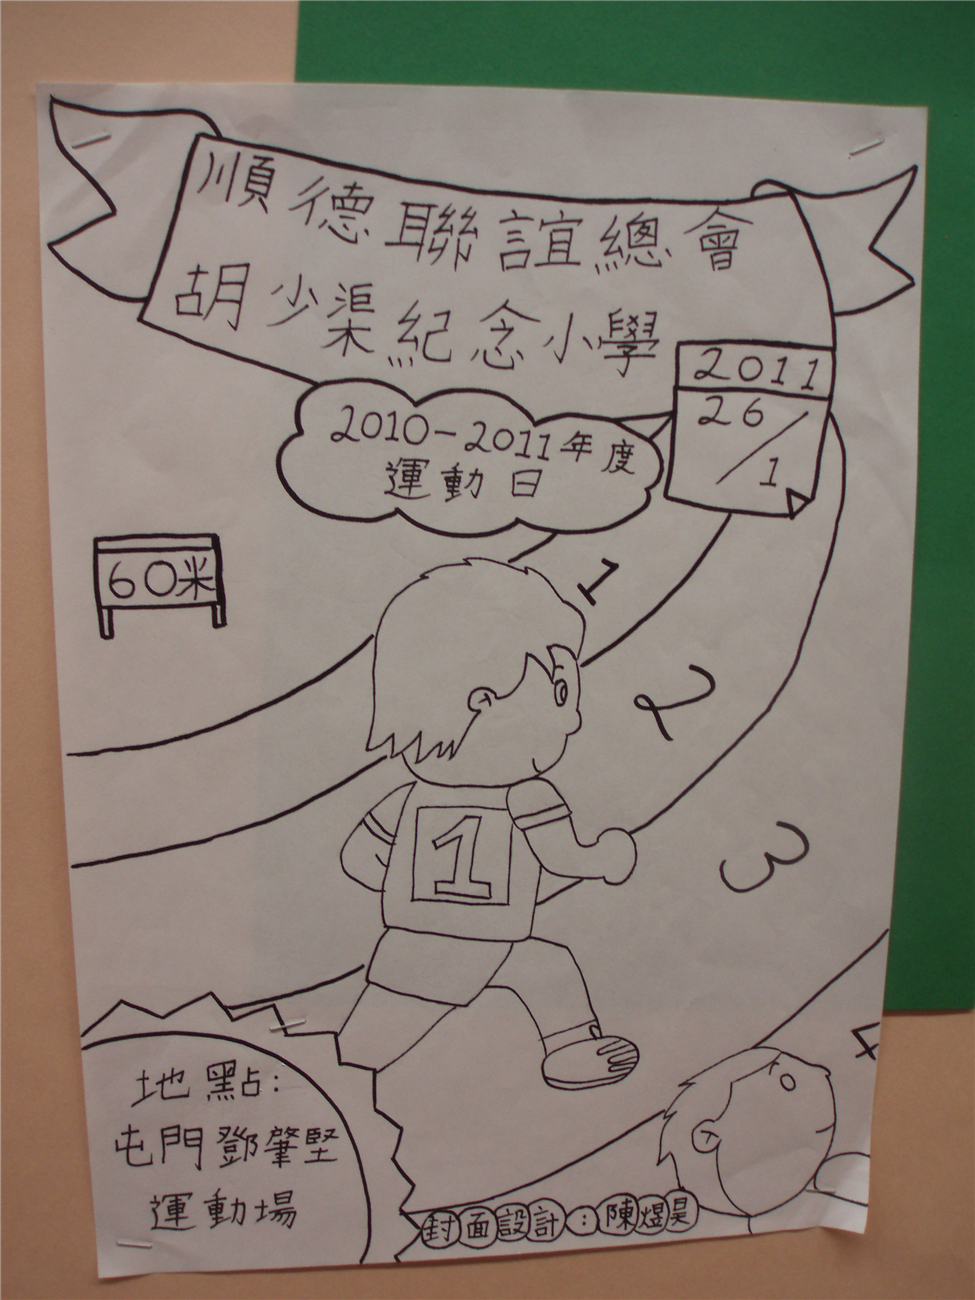 順德聯誼總會
胡少渠紀念小學
2011
26/1
2010-2011年度
運動日
60米
1
2
3
4
1
地點:
屯門鄧肇堅
運動場
封面設計:陳煜昊